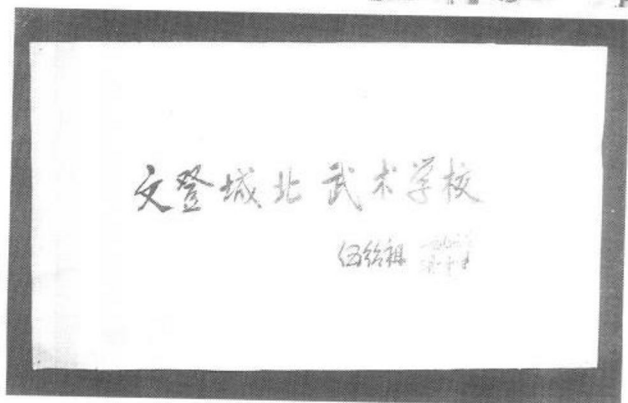 文登城北武术学校
伍绍祖